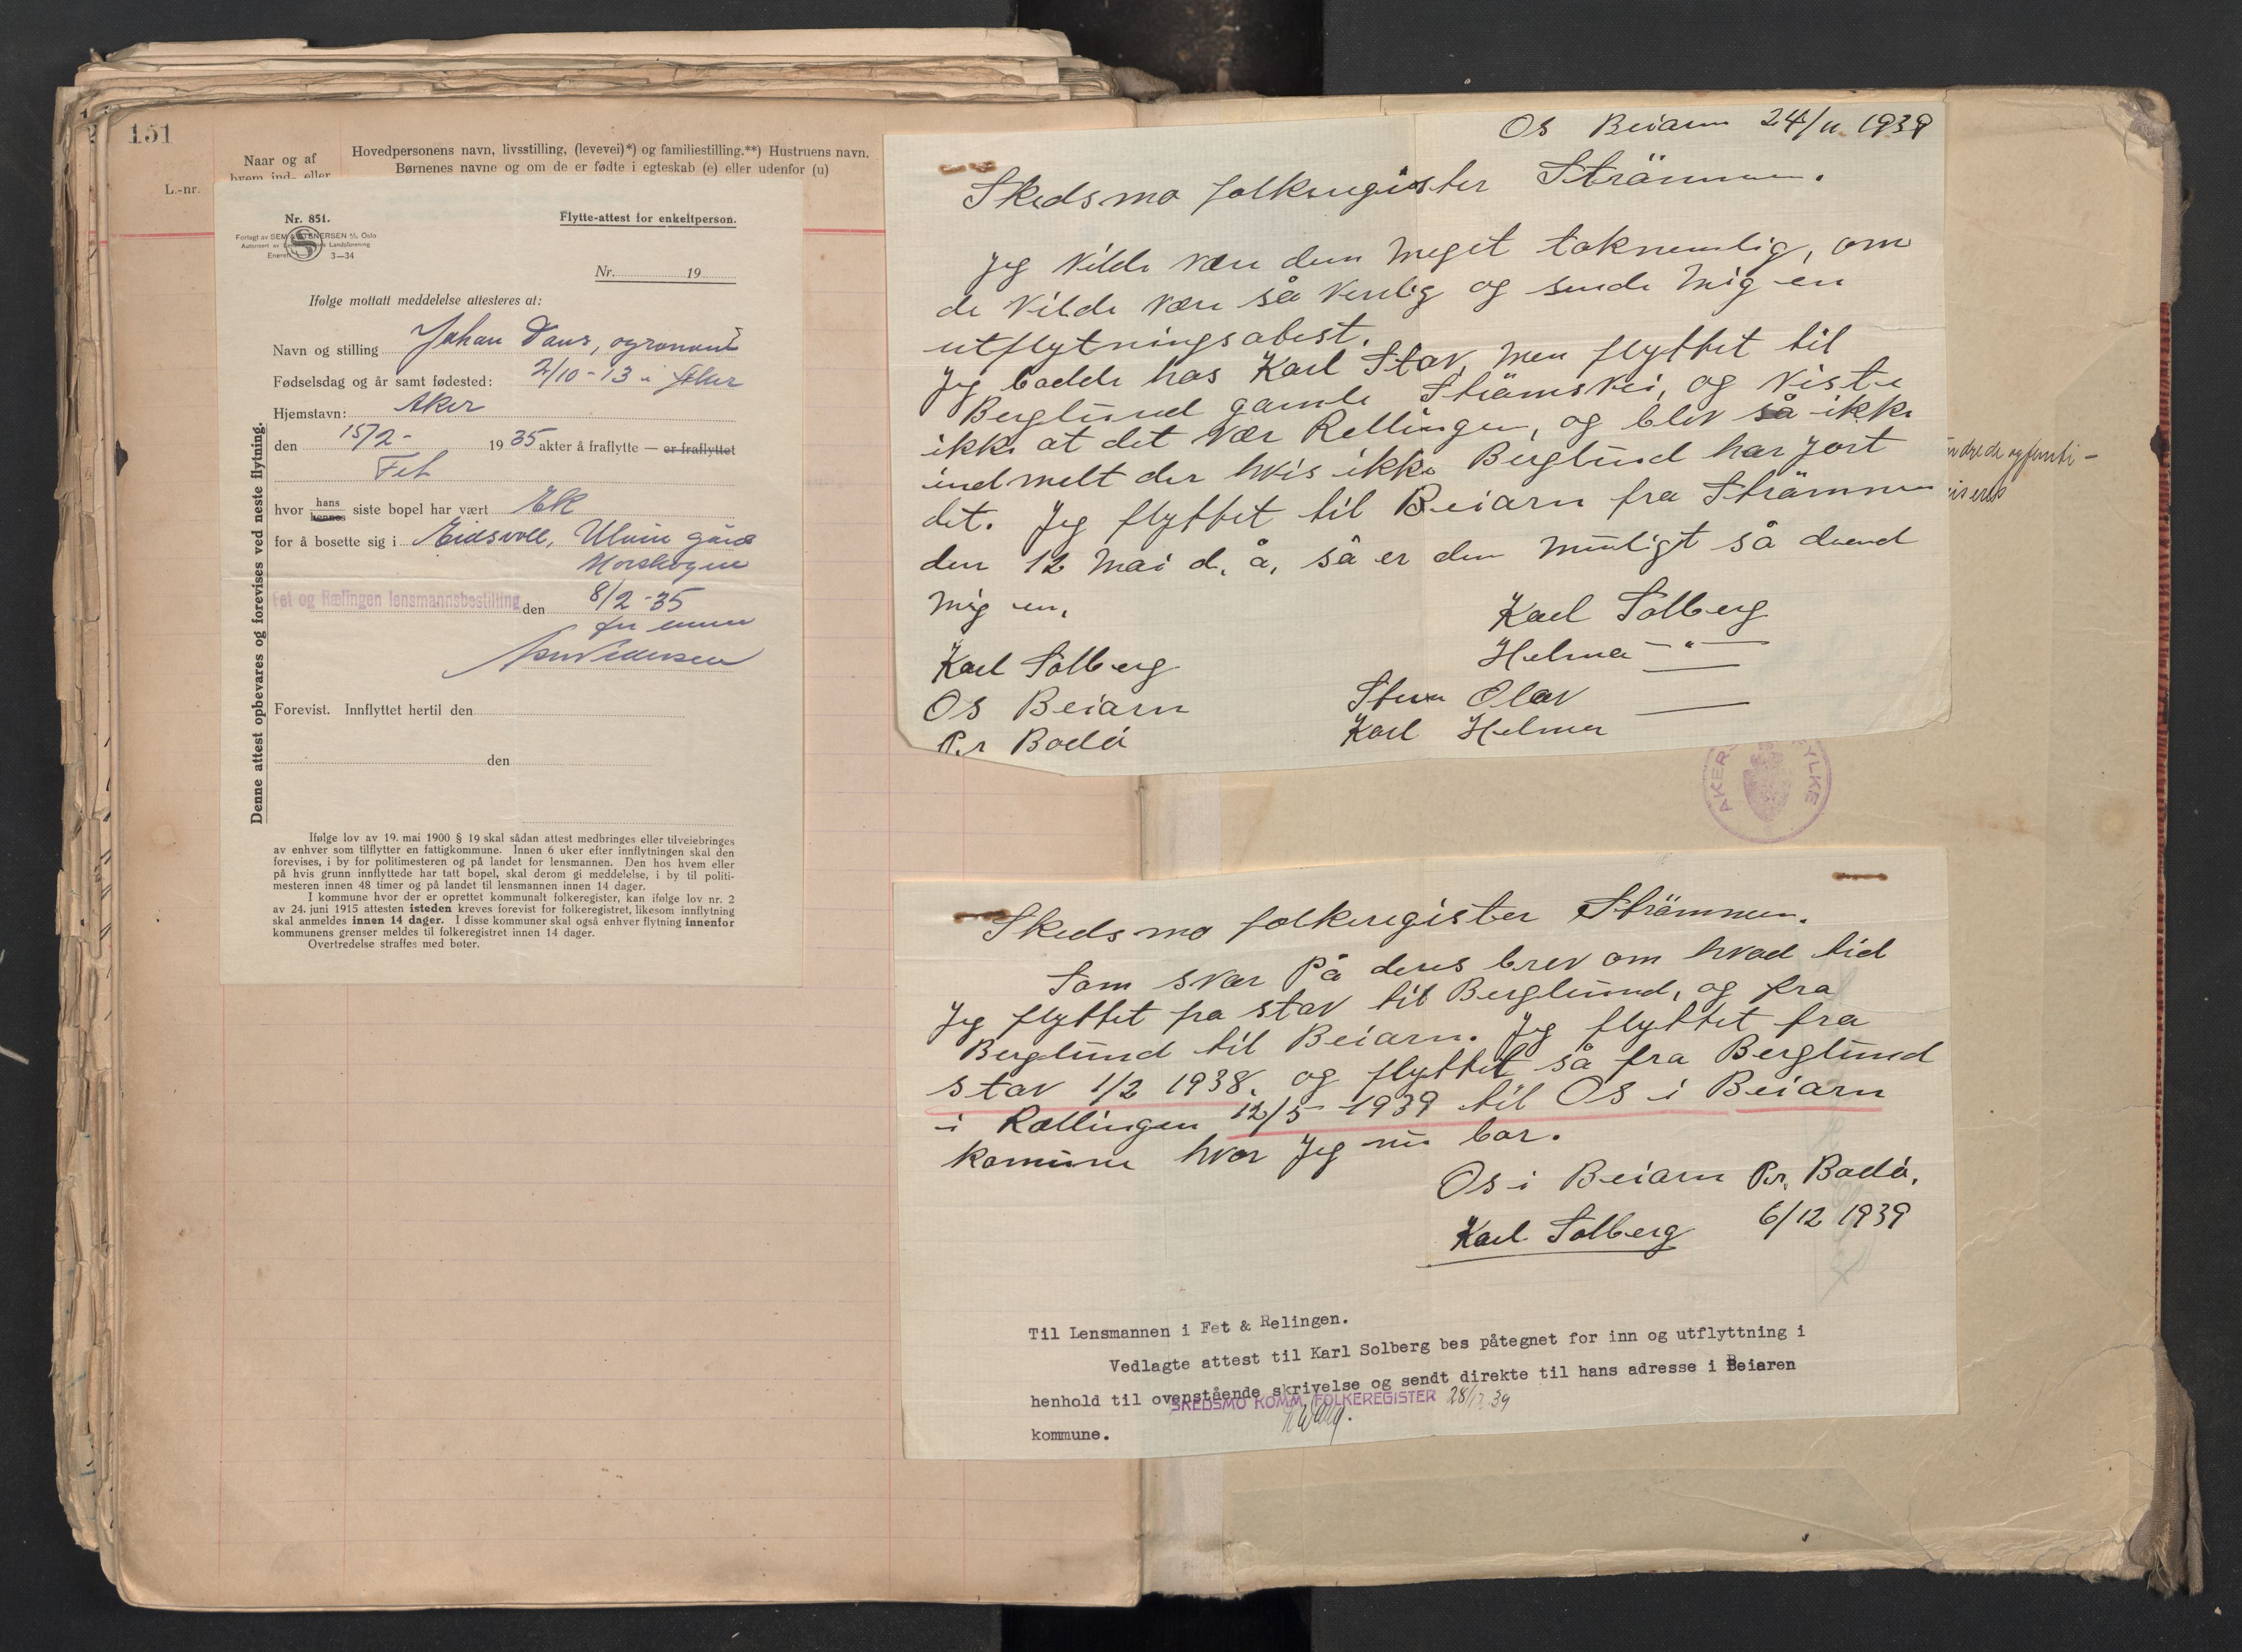 151
Naar og af
hvem ind- eller
Hovedpersonens navn, livsstilling, (levevei)*) og familiestilling.**) Hustruens navn.
Børnenes navne og om de er fødte i egteskab (e) eller udenfor (u)
L.-nr.
Nr. 851.
Flytte-attest for enkeltperson.
Forlagt av SEM & STENERSEN A/S, Oslo
Autorisert av Landsforening
Enerett 3—34
Nr. 19
Ifølge mottatt meddelelse attesteres at:
Navn og stilling Johan
Fødselsdag og år samt fødested: 2/10-13 i Aker
Hjemstavn: Aker
den 15/2- 1935 akter å fraflytte — er fraflyttet
Fet
hvor hans hennes siste bopel har vært Ek
for å bosette sig i Eidsvoll, Ulvin gård
Morskogen
Fet og Rælingen lensmannsbestilling den 8/2-35
Forevist. Innflyttet hertil den
den
Denne attest opbevares og forevises ved neste flytning.
Ifølge lov av 19. mai 1900 § 19 skal sådan attest medbringes eller tilveiebringes
av enhver som tilflytter en fattigkommune. Innen 6 uker efter innflytningen skal den
forevises, i by for politimesteren og på landet for lensmannen. Den hos hvem eller
på hvis grunn innflyttede har tatt bopel, skal derom gi meddelelse, i by til politi-
mesteren innen 48 timer og på landet til lensmannen innen 14 dager.
I kommune hvor der er oprettet kommunalt folkeregister, kan ifølge lov nr. 2
av 24. juni 1915 attesten isteden kreves forevist for folkeregistret, likesom innflytning
skal anmeldes innen 14 dager. I disse kommuner skal også enhver flytning innenfor
kommunens grenser meldes til folkeregistret innen 14 dager.
Overtredelse straffes med bøter.
Os Beiarn 24/11 1939
Skedsmo folkeregister Strämmen.
Jeg vilde være dem meget taknemlig, om
de vilde være så venlig og sende mig en
utflytningsatest.
Jeg bodde hos Karl Stav, men flyttet til
Berglund gamle Strämsvei, og viste
ikke at det vær Rellingen, og blev så ikke
indmelt der hvis ikke Berglund har jort
det. Jeg flyttet til Beiarn fra Strämmen
den 12 mai d. å, så er den munligt så
mig en,
Karl Solberg
Helma — " —
Karl Solberg
Os Beiarn
Pr Bodó
Olav
Karl Helmer
AKERSHUS FYLKE
Skedsmo folkeregister Strämmen.
Som svar På deres brev om hvad tid
Jeg flyttet fra stav til Berglund, og fra
Berglund til Beiarn. Jeg flyttet fra
stav 1/2 1938. og flyttet så fra Berglund
i Rællingen 12/5-1939 til Os i Beiarn
Komune hvor Jeg nu bor.
Os i Beiarn Pr. Bodó.
Karl Solberg 6/12 1939
Til Lensmannen i Fet & Relingen.
Vedlagte attest til Karl Solberg bes påtegnet for inn og utflyttning i
henhold til ovenstående skrivelse og sendt direkte til hans adresse i Beiaren
SKEDSMO KOMM. FOLKEREGISTER 28/12.39
kommune.